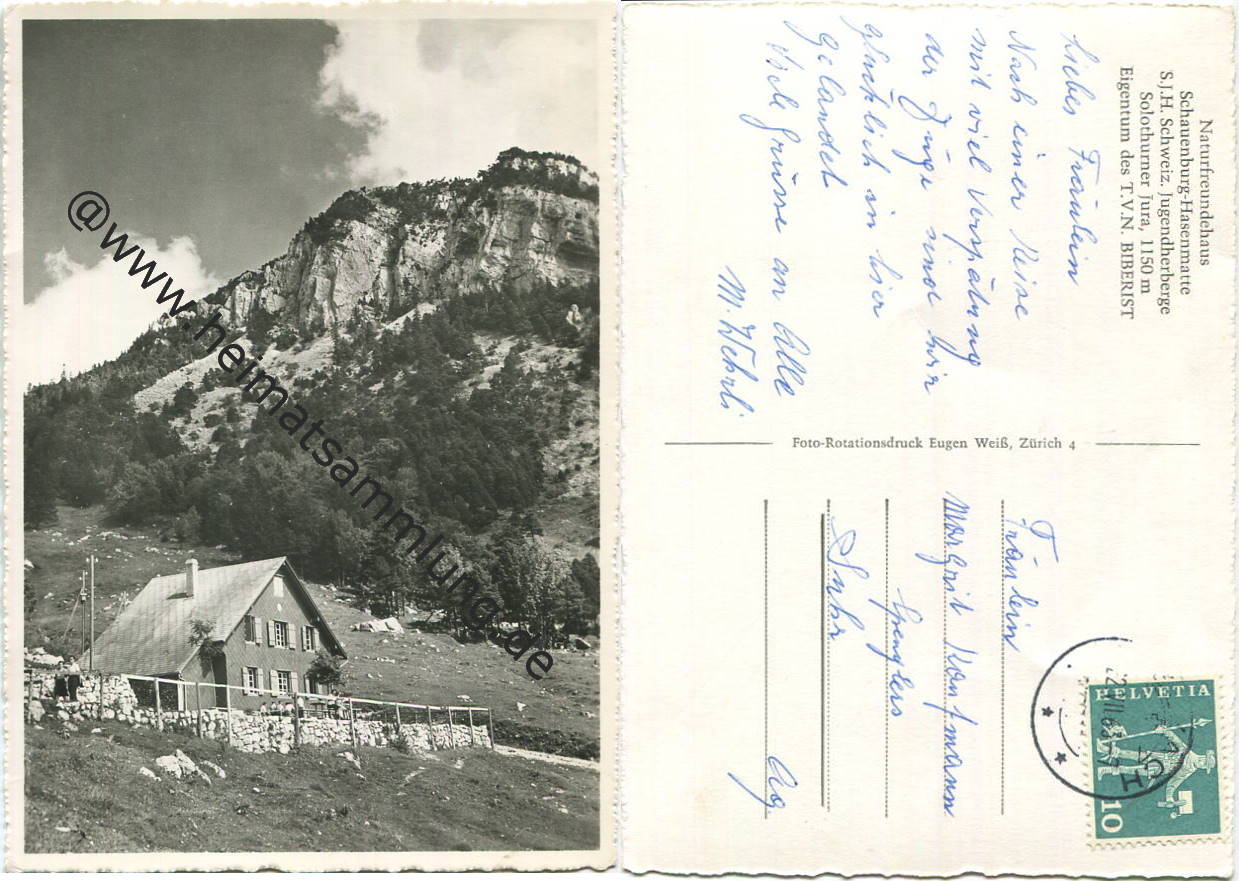 @www.heimatsammlung.de
Naturfreundehaus
Schauenburg-Hasenmatte
S.J.H. Schweiz. Jugendherberge
Solothurner Jura, 1150 m
Eigentum des T.V.N. BIBERIST
Liebes Fräulein
Nach einer Reise
mit viel Verspätung
der Züge sind wir
glücklich in hier
gelandet
Viele Grüsse an Alle
M. Wehrli
Foto-Rotationsdruck Eugen Weiß, Zürich 4
Fräulein
Margrit
Suhr
Arg.
HELVETIA
10